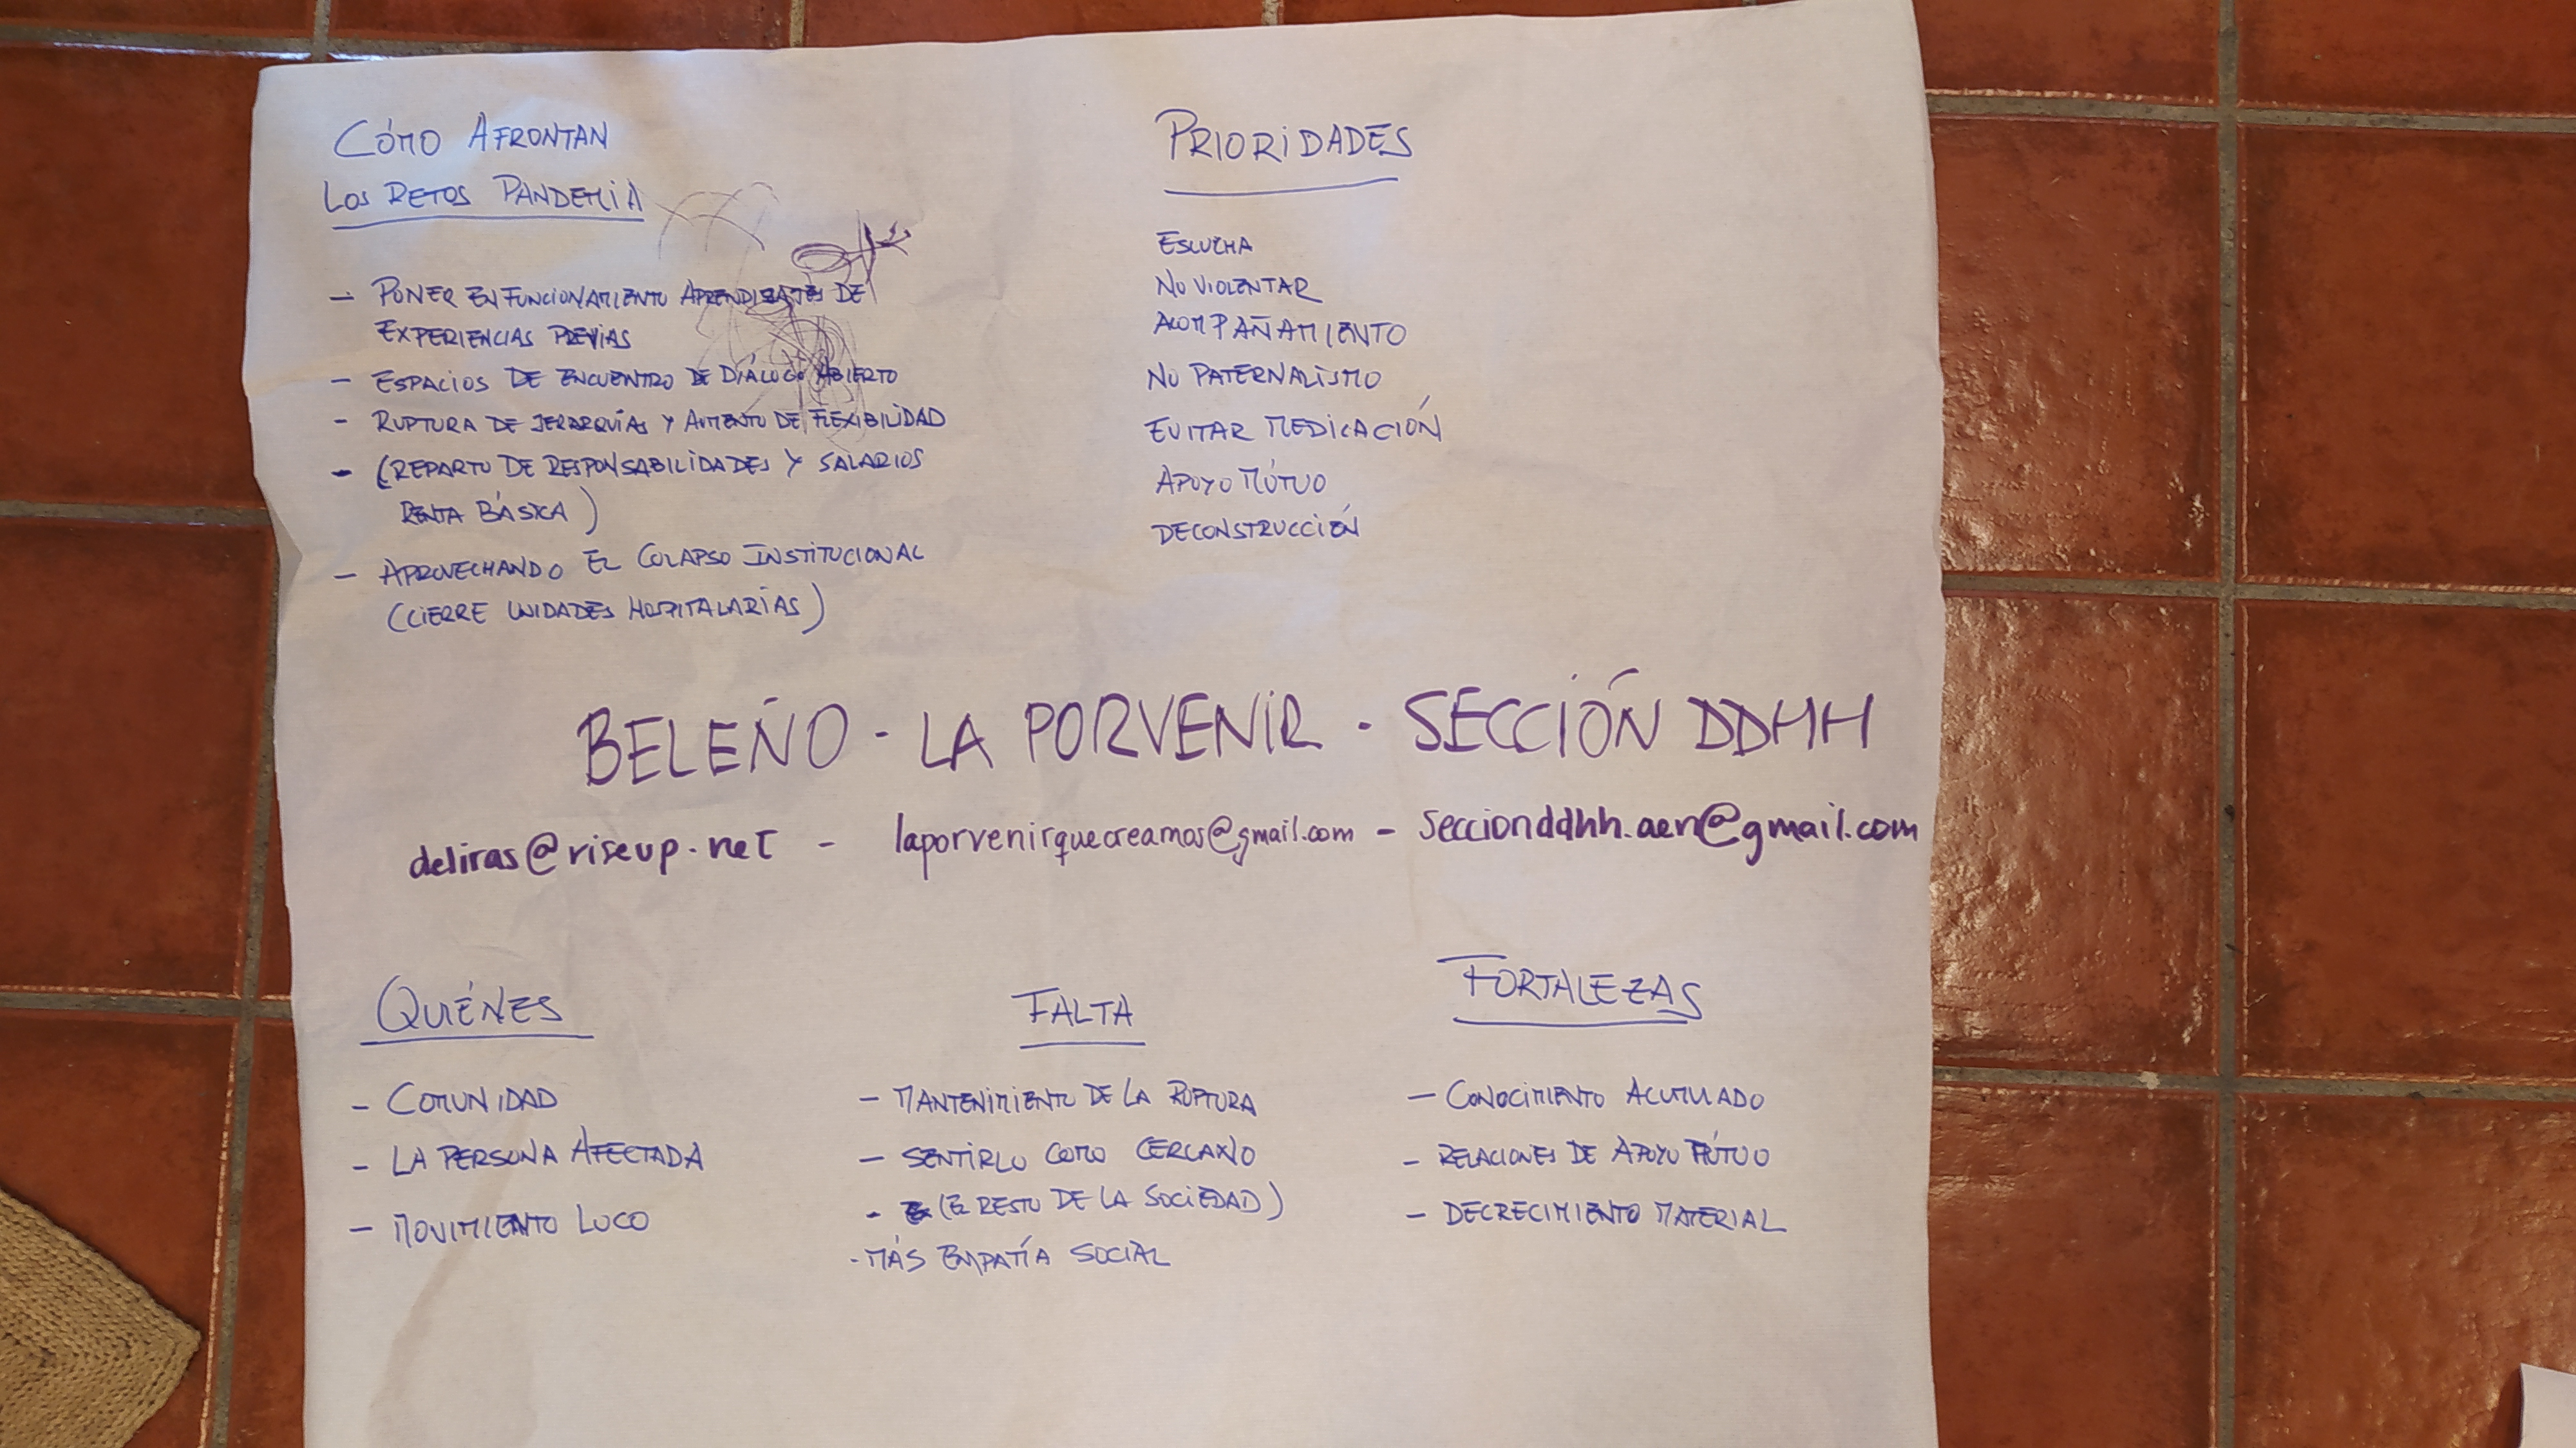 CÓMO AFRONTAN
LOS RETOS PANDEMIA
- PONER EN FUNCIONAMIENTO APRENDIZAJES DE
EXPERIENCIAS PREVIAS
- ESPACIOS DE ENCUENTRO DE DIÁLOGO ABIERTO
- RUPTURA DE JERARQUÍAS Y AUMENTO DE FLEXIBILIDAD
- (REPARTO DE RESPONSABILIDADES Y SALARIOS
RENTA BÁSICA)
- APROVECHANDO EL COLAPSO INSTITUCIONAL
(CIERRE UNIDADES HOSPITALARIAS)
PRIORIDADES
ESCUCHA
NO VIOLENTAR
ACOMPAÑAMIENTO
NO PATERNALISMO
EVITAR MEDICACIÓN
APOYO MÚTUO
DECONSTRUCCIÓN
BELEÑO - LA PORVENIR - SECCIÓN DDHH
deliras@riseup.net - laporvenirquecreamos@gmail.com - seccionddhh.aen@gmail.com
QUIÉNES
- COMUNIDAD
- LA PERSONA AFECTADA
- MOVIMIENTO LOCO
FALTA
- MANTENIMIENTO DE LA RUPTURA
- SENTIRLO COMO CERCANO
- (EL RESTO DE LA SOCIEDAD)
- MÁS EMPATÍA SOCIAL
FORTALEZAS
- CONOCIMIENTO ACUMULADO
- RELACIONES DE APOYO MÚTUO
- DECRECIMIENTO MATERIAL